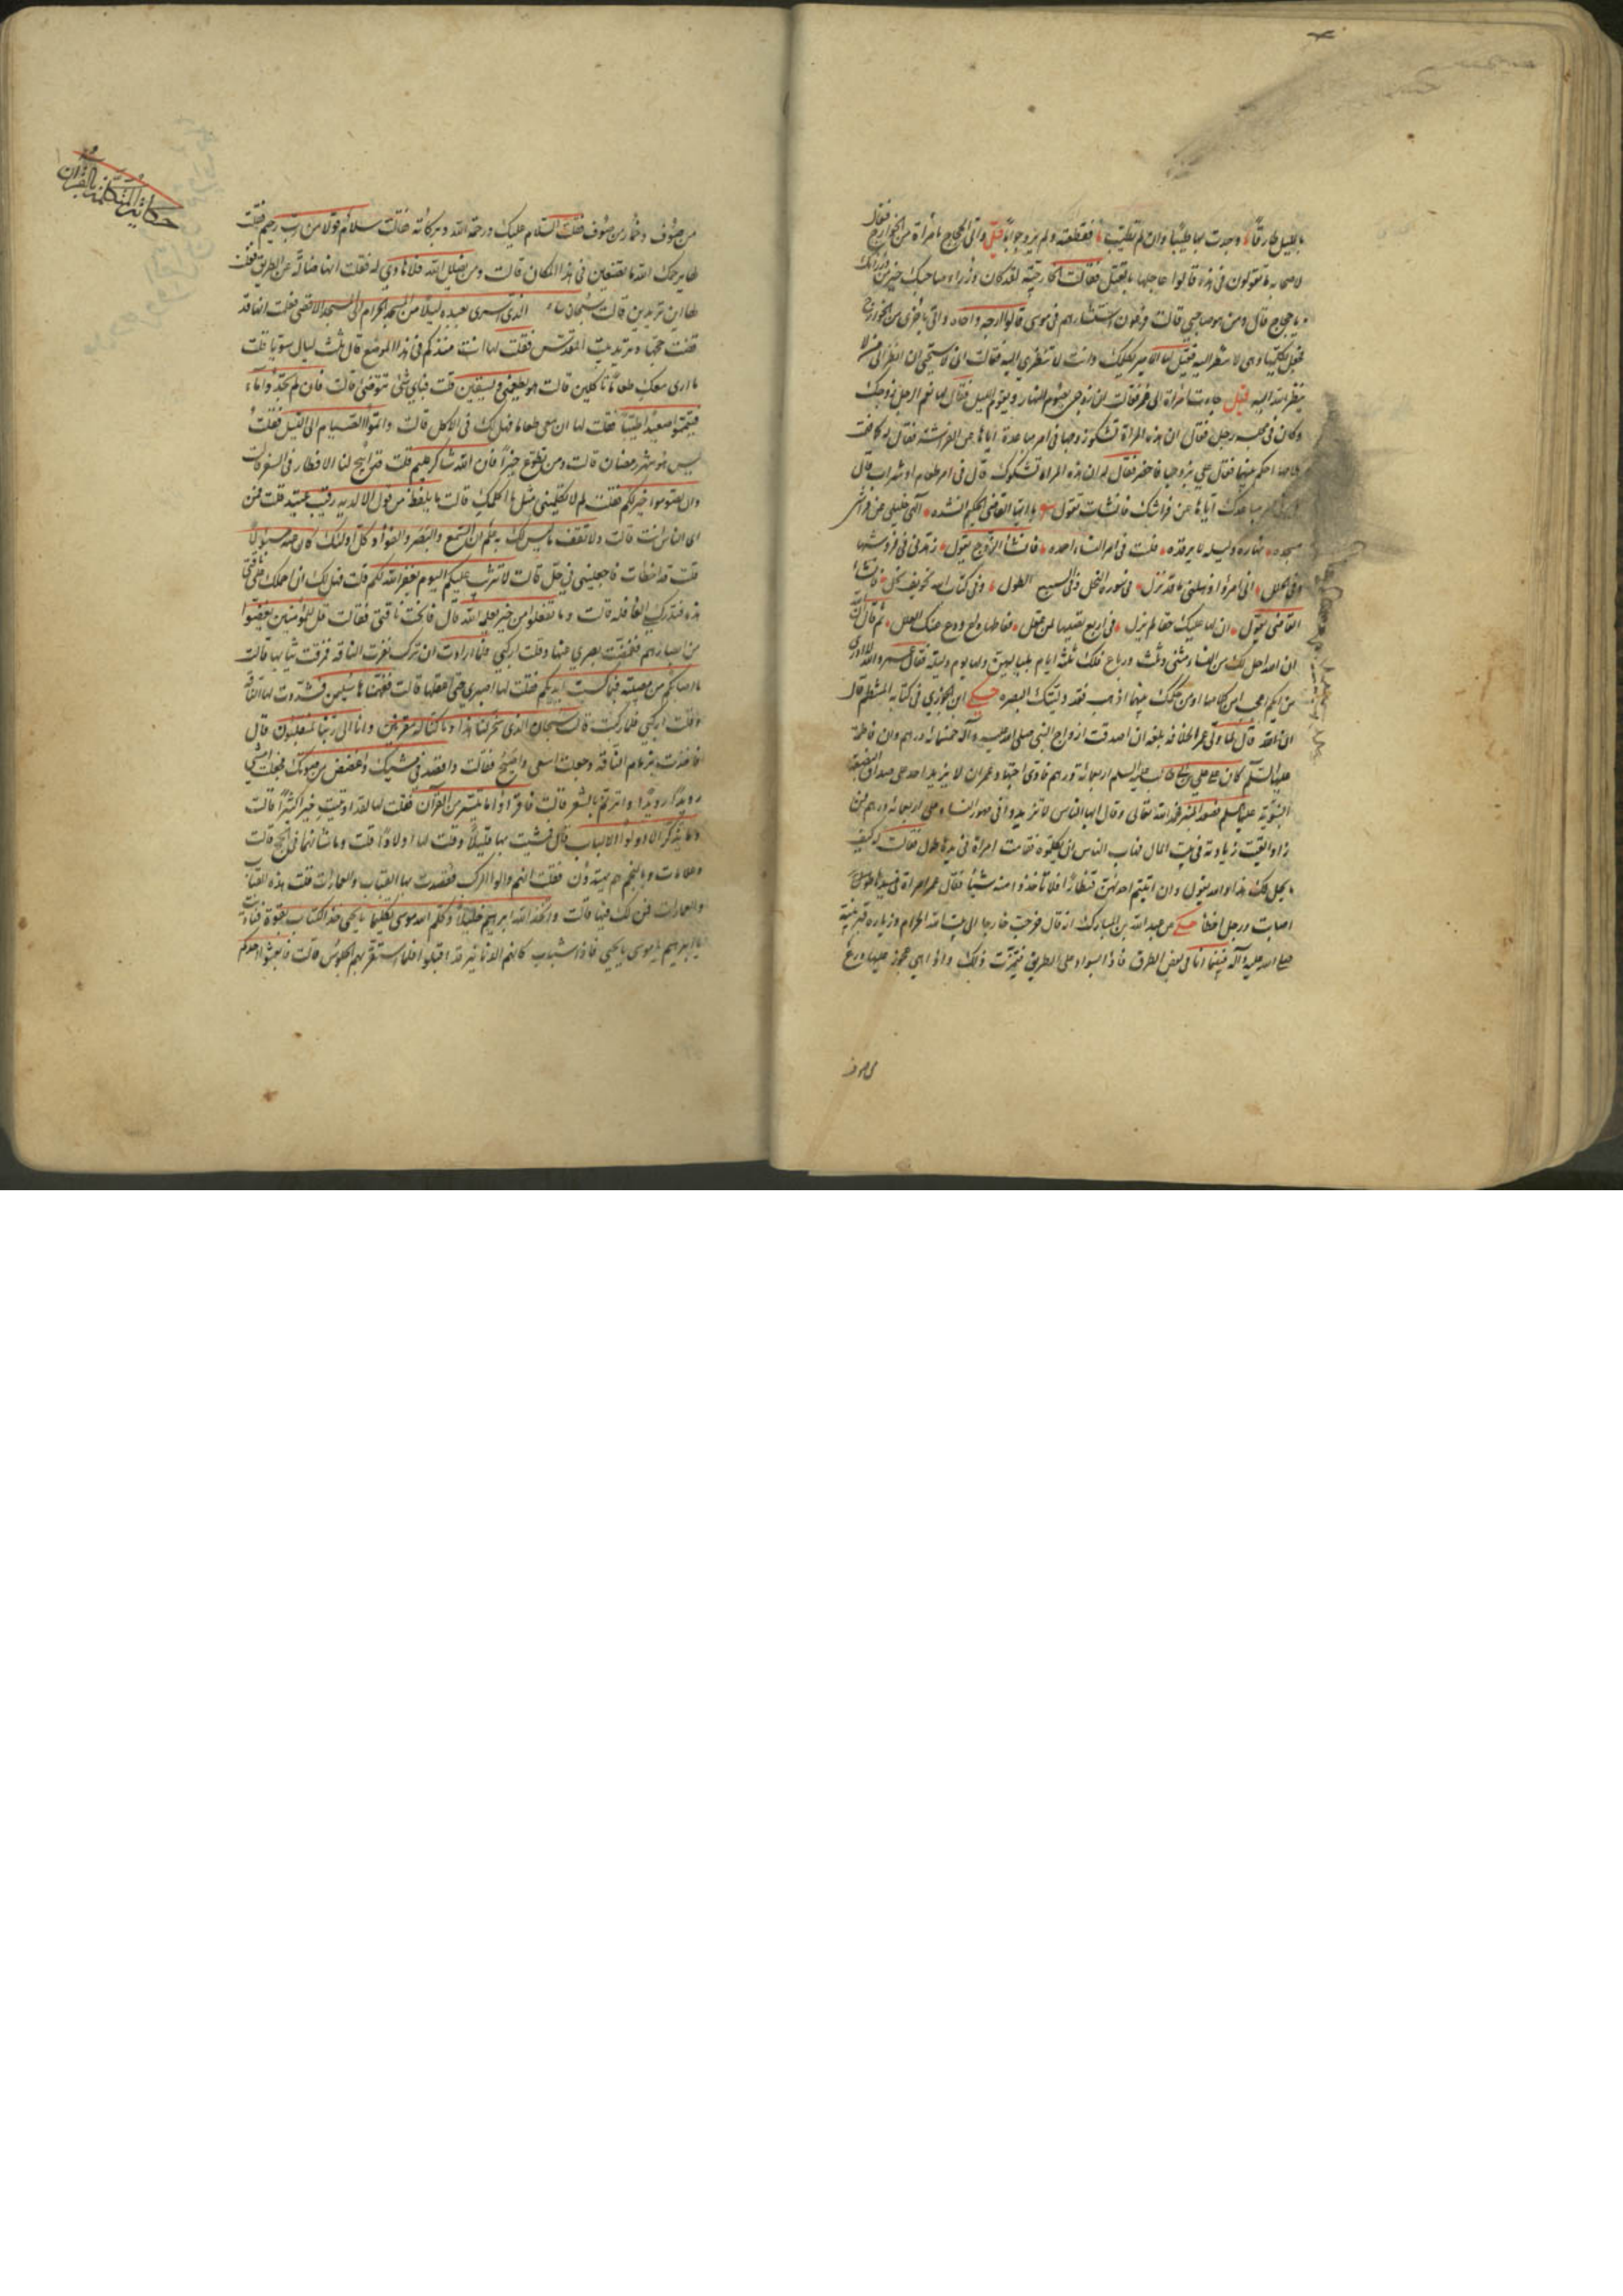 بالليل طارقا وجدت بها طيبا وان لم تطيب فقطعته ولم يرد جوابا قيل واتى الحجاج بامرأة من الخوارج فقال
لاصحابه ما تقولون في هذه قالوا عاجلها بالقتل فقالت الخارجية لقد كان وزراء صاحبك خير من وزرائك
يا حجاج قال ومن هو صاحبي قالت فرعون استشارهم في موسى قالوا ارجه واخاه واتى باخرى من الخوارج
فجعل يكلمها وهي لا تنظر اليه فقيل لها الامير يكلمك وانت لا تنظري اليه فقالت اني لاستحيي ان انظر الى من لا
ينظر الله اليه قيل جاءت امرأة الى عمر فقالت ان زوجي يصوم النهار ويقوم الليل فقال لها نعم الرجل زوجك
وكان في مجلسه رجل فقال ان هذه المرأة تشكو زوجها في امر مباعدة اياها عن الفراش فقال له كما فهمت
احكم بينهما فقال علي بزوجها فاحضر فقال له ان هذه المراة تشكوك قال في امر طعام او شراب قال
مباعدك اياها عن فراشك فانشأت تقول يا ايها القاضي الحكيم انشده الهى خليلي عن فراشي
مسجده نهاره وليله ما يرقده فلست في امر النساء احمده فانشأ الزوج يقول زهدني في فرشها
وفي الحلل اني امرؤ اذهلني ما قد نزل في سورة النحل وفي السبع الطول وفي كتاب الله تخويف جلل فانشأ
القاضي يقول ان لها عليك حقا لم يزل في اربع نصيبها لمن عقل فعاطها ودع عنك العلل ثم قال ان
ان الله احل لك من النساء مثنى وثلث ورباع فلك ثلثة ايام بلياليهن ولها يوم وليلة فقال عمر والله لا ادري
من ايكم اعجب امن كلامها او من حكمك بينهما اذهب فقد وليتك البصره حكى ابن الجوزي في كتابه المنتظم قال
قال لما ولي عمر الخلافه بلغه ان اصدقت ازواج النبي صلى الله عليه وآله خمسمائة درهم وان فاطمة
عليها السلم كان على علي بن ابي طالب عليه السلم اربعمائة درهم فادى اجتهاد عمر ان لا يزيد احد على صداق البضعة
النبوية عليها السلم فصعد المنبر فحمد الله تعالى وقال ايها الناس لا تزيدوا في مهور النساء على اربعمائة درهم فمن
زاد القيت زيادته في بيت المال فهاب الناس ان يكلموه فقامت امراة في يدها طول فقالت له كيف
ما يحل لك هذا والله يقول وان اتيتم احدهن قنطارا فلا تأخذوا منه شيئا فقال عمر امراة
اصابت ورجل اخطأ حكى عن عبد الله بن المبارك انه قال خرجت حاجا الى بيت الله الحرام وزيارة قبر نبيه
صلى الله عليه وآله فبينما انا في بعض الطرق فاذا بسواد على الطريق فتميزت ذلك واذا هي عجوز عليها درع
من صوف
حكاية المتكلمة بالقرآن
من صوف وخمار من صوف فقلت السلام عليك ورحمة الله وبركاته فقالت سلام قولا من رب رحيم فقلت
لها يرحمك الله ما تصنعين في هذا المكان قالت ومن يضلل الله فلا هادي له فقلت انها ضالة عن الطريق فقلت
لها اين تريدين قالت سبحان الذي اسرى بعبده ليلا من المسجد الحرام الى المسجد الاقصى فعلمت انها قد
قضت حجها وتريد بيت المقدس فقلت لها انت منذ كم في هذا الموضع قال ثلث ليال سويا قلت
ما ارى معك طعاما تاكلين قالت هو يطعمني ويسقين قلت فباي شئ تتوضئي قالت فان لم تجدوا ماء
فتيمموا صعيدا طيبا فقلت لها ان معي طعاما فهل لك في الاكل قالت واتموا الصيام الى الليل فقلت
ليس هو شهر رمضان قالت ومن تطوع خيرا فان الله شاكر عليم قلت قد ابيح لنا الافطار في السفر قالت
وان تصوموا خير لكم فقلت لم لا تكلميني مثل ما اكلمك قالت ما يلفظ من قول الا لديه رقيب عتيد قلت فمن
اي الناس انت قالت ولا تقف ما ليس لك به علم ان السمع والبصر والفؤاد كل اولئك كان عنه مسئولا
قلت قد اخطات فاجعليني في حل قالت لا تثريب عليكم اليوم يغفر الله لكم قلت فهل لك ان احملك على ناقتي
هذه فتدركي القافله قالت وما تفعلوا من خير يعلمه الله قال فانخت ناقتي فقالت قل للمؤمنين يغضوا
من ابصارهم فغضضت بصري عنها وقلت اركبي فلما ارادت ان تركب نفرت الناقه فمزقت ثيابها قالت
ما اصابكم من مصيبة فبما كسبت ايديكم فقلت لها اصبري حتى اعقلها قالت ففهمناها سليمن فشددت لها الناقة
وقلت اركبي فلما ركبت قالت سبحان الذي سخر لنا هذا وما كنا له مقرنين وانا الى ربنا لمنقلبون قال
فاخذت بزمام الناقه وجعلت اسعى واصيح فقالت واقصد في مشيك واغضض من صوتك فجعلت امشي
رويدا رويدا واترنم بالشعر قالت فاقرؤا ما تيسر من القرآن فقلت لها لقد اوتيت خيرا كثيرا قالت
وما يذكر الا اولوا الالباب قال فمشيت بها قليلا وقلت لها اولادا قلت وما شأنهما في الحج قالت
وعلامات وبالنجم هم يهتدون فقلت انهم والوا الركب فقصدت بها القباب والعمارات قلت هذه القباب
والعمارات فمن لك فيها قالت واتخذ الله ابراهيم خليلا وكلم الله موسى تكليما يا يحيى خذ الكتاب بقوة فناديت
يا ابراهيم يا موسى يا يحيى فاذا شباب كانهم الدنانير قد اقبلوا فلما استقر بهم الجلوس قالت فابعثوا احدكم